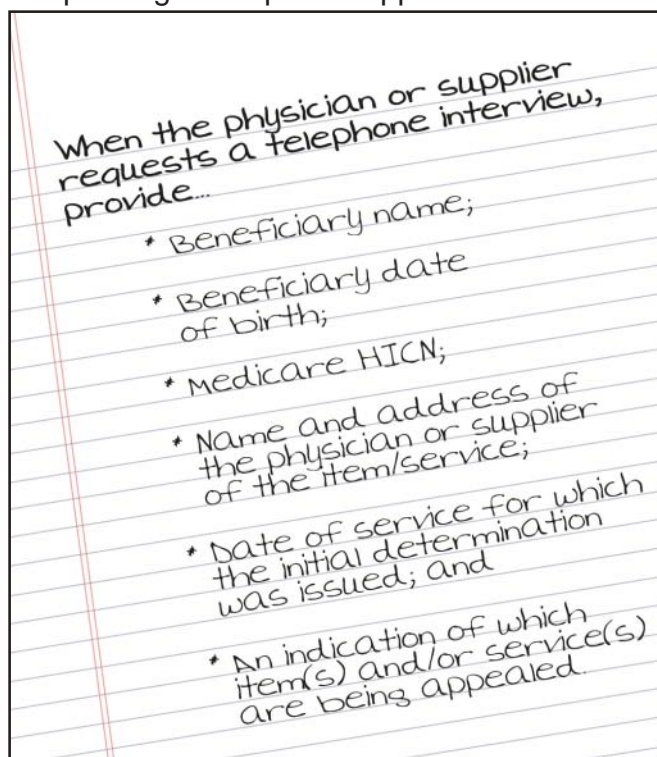 When the physician or supplier
requests a telephone interview,
provide...
* Beneficiary name;
* Beneficiary date
of birth;
* Medicare HICN;
* Name and address of
the physician or supplier
of the item/service;
* Date of service for which
the initial determination
was issued; and
* An indication of which
item(s) and/or service(s)
are being appealed.